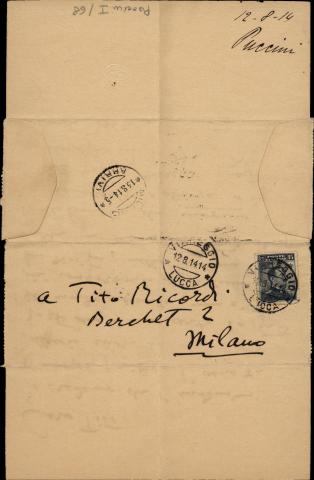 12-8-14
Puccini
13.8.14-5
ARRIVI
VIAREGGIO
12.8.1414
LUCCA
VIAREGGIO
LUCCA
a Tito Ricordi
Berchet 2
Milano